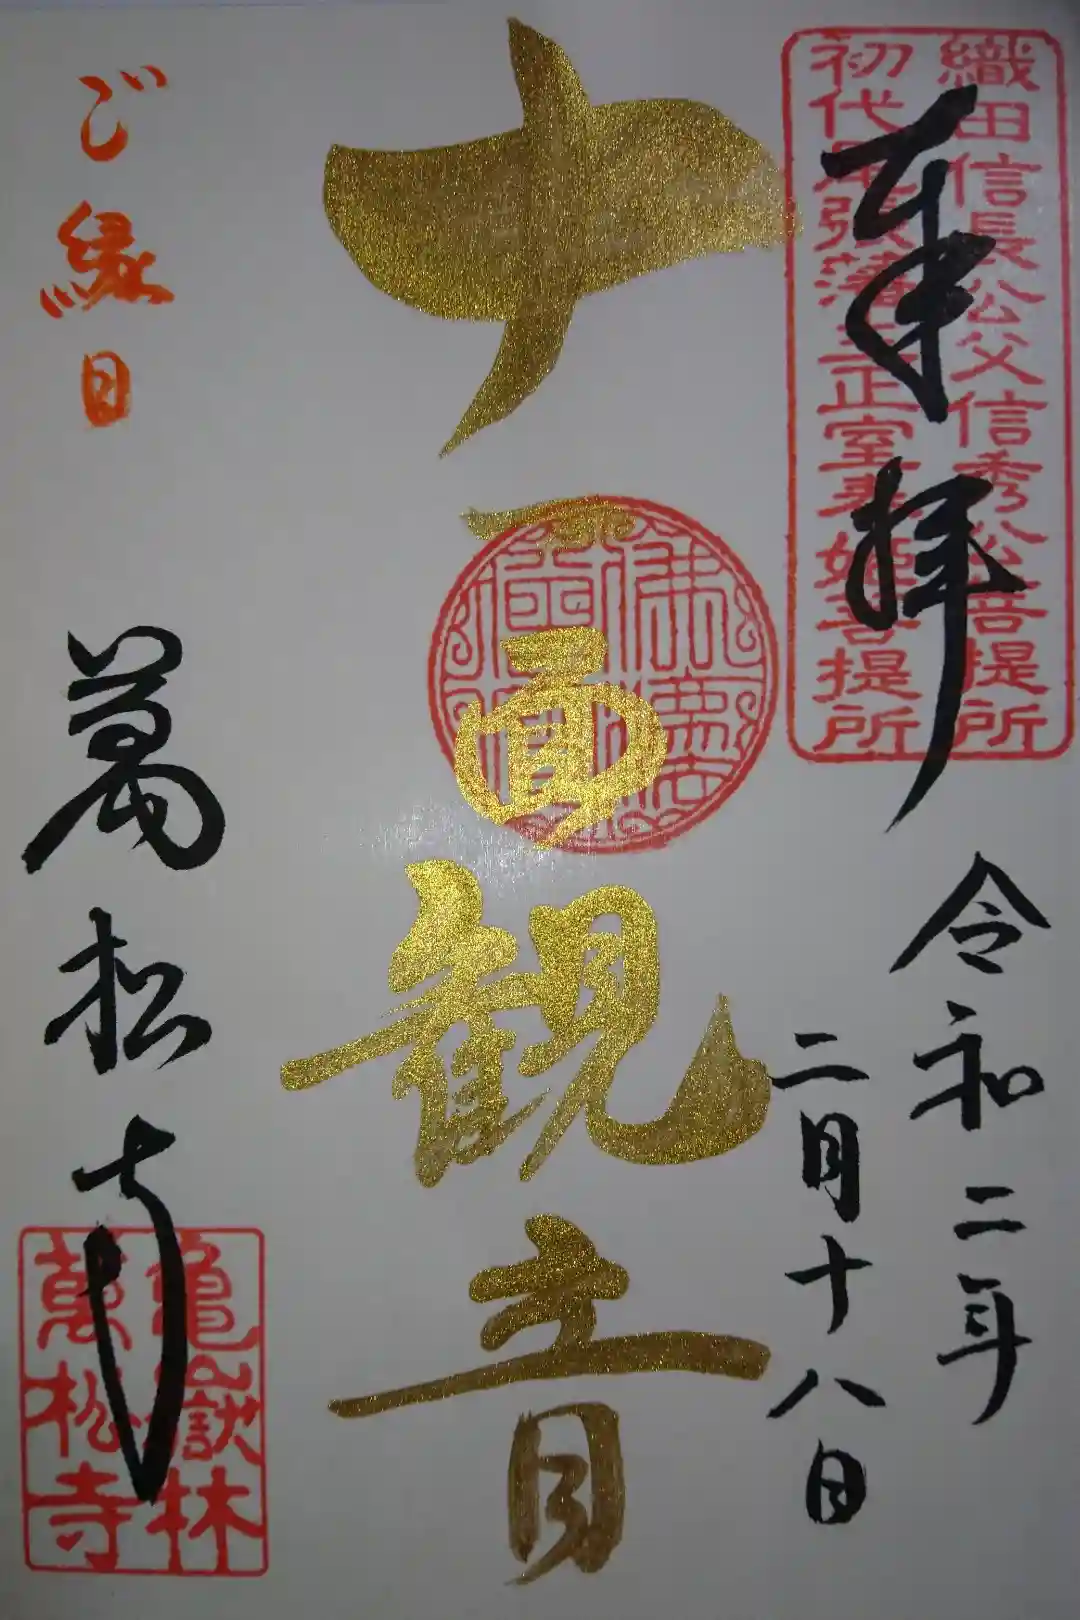 織田信長公父信秀公菩提所
初代尾張藩主正室春姫菩提所
奉拝
令和二年
二月十八日
十一面観音
ご縁日
萬松寺
亀嶽林
萬松寺